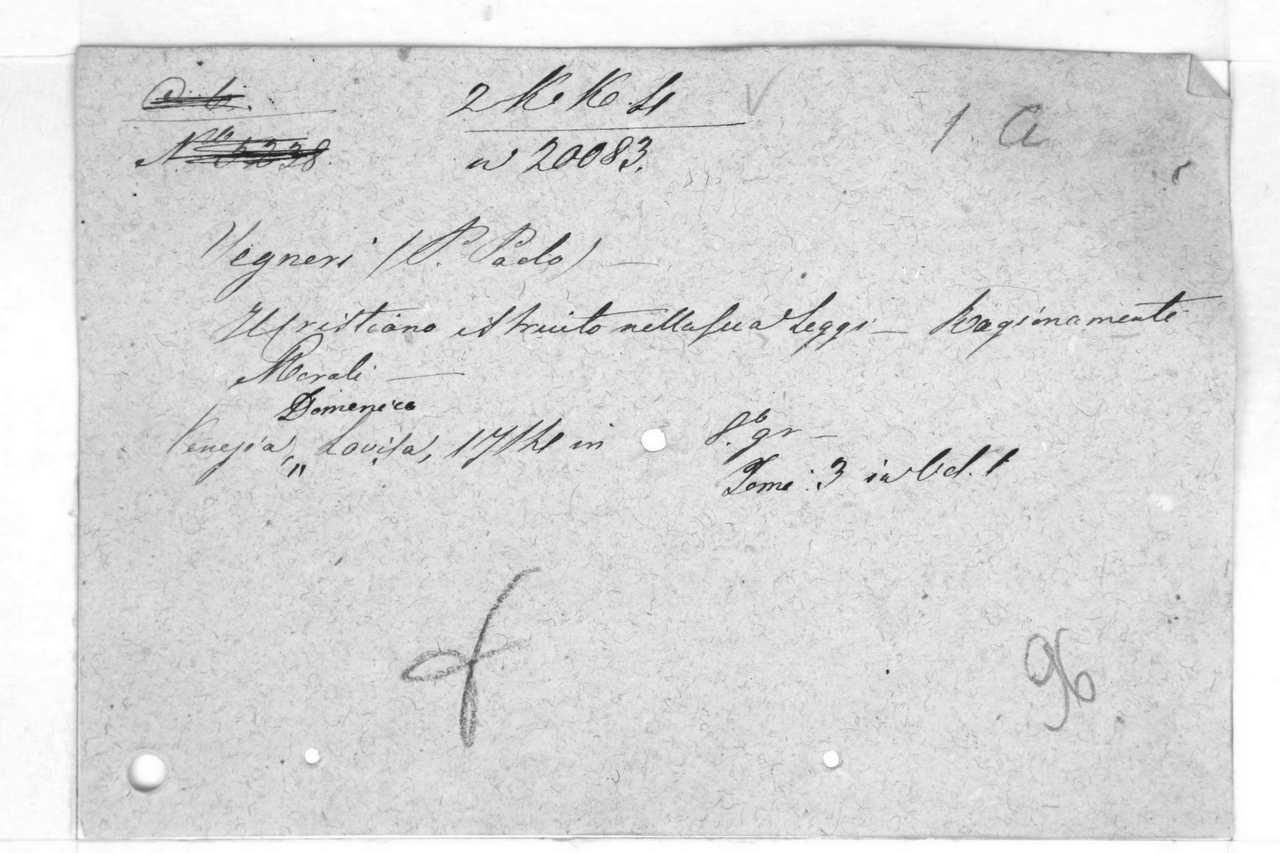 2 KK. 4
1 a
w 20083.
Segneri (P. Paolo) —
Il Cristiano istruito nella sua Leggi — Ragionamente
Morali —
Domenico
Venezia, „ Lovisa, in 8.º gr —
Tome: 3 in Vol. 1
96